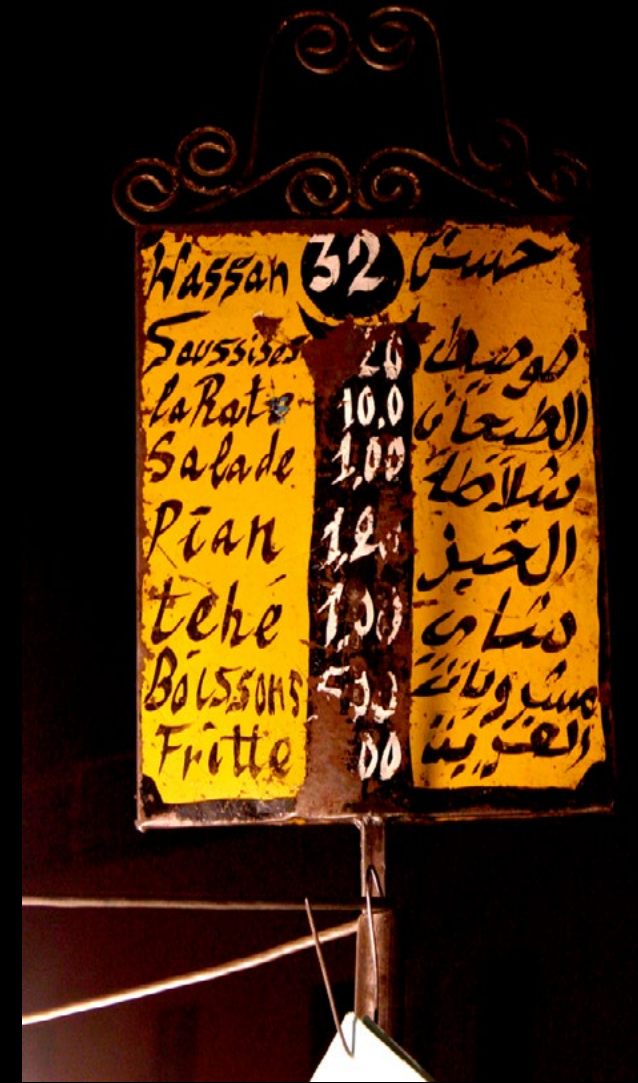 Hassan 32 حسن
Soussises 20 صوصيط
la Rate 10.0 الطيحان
Salade 1,00 شلاطة
Pian 1,20 الخبز
tehé 1,00 شاي
Boissons 5,00 مشروبات
Fritte 00 الفريت